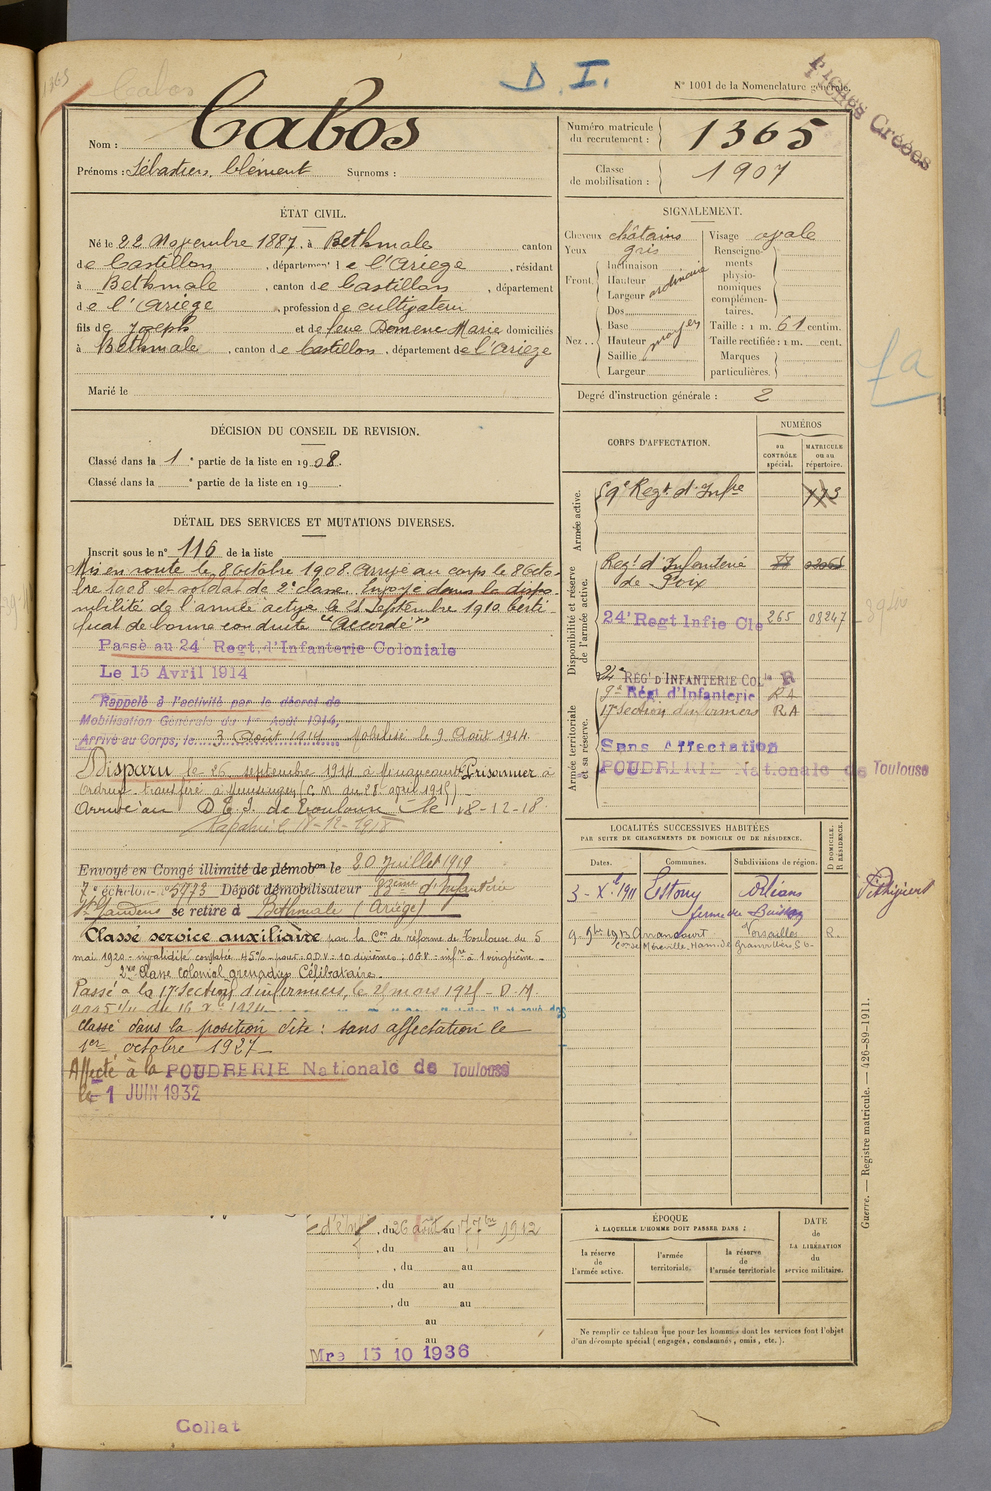 1365
Cabos
D. I.
N° 1001 de la Nomenclature générale.
Fiches Créées
Nom : Cabos
Prénoms : Sébastien, Clément Surnoms :
Numéro matricule du recrutement : 1365
Classe de mobilisation : 1907
ÉTAT CIVIL.
Né le 22 Novembre 1887, à Bethmale canton
de Castillon, département de l'Ariège, résidant
à Bethmale, canton de Castillon, département
de l'Ariège, profession de cultivateur
fils de Joseph et de feue Domenc Marie domiciliés
à Bethmale, canton de Castillon, département de l'Ariège
Marié le
SIGNALEMENT.
Cheveux châtains
Yeux gris
Front. Inclinaison
Hauteur ordinaire
Largeur
Nez. Dos
Base
Hauteur moyen
Saillie
Largeur
Visage ovale
Renseignements physionomiques complémentaires.
Taille : 1 m. 61 centim.
Taille rectifiée : 1 m. cent.
Marques particulières.
Degré d'instruction générale : 2
fa
DÉCISION DU CONSEIL DE REVISION.
Classé dans la 1e partie de la liste en 1908.
Classé dans la e partie de la liste en 19
DÉTAIL DES SERVICES ET MUTATIONS DIVERSES.
Inscrit sous le n° 116 de la liste
Mis en route le 8 octobre 1908. Arrivé au corps le 8 octo-
bre 1908 et soldat de 2e classe. Envoyé dans la dispo-
nibilité de l'armée active le 25 Septembre 1910. Certi-
ficat de bonne conduite "Accordé"
Passé au 24 Regt. d'Infanterie Coloniale
Le 15 Avril 1914
Rappelé à l'activité par le décret de
Mobilisation Générale du 1er Août 1914,
Arrivé au Corps, le 3 Août 1914 Mobilisé le 9 Août 1914.
Disparu le 26 septembre 1914 à Minaucourt Prisonnier à
Ordruf transféré à Munsingen (C. M. du 28 avril 1915)
Arrivé au D.E.I. de Toulouse le 18-12-18
Rapatrié le 18-12-1918
Envoyé en Congé illimité de démobon le 20 Juillet 1919
7e échelon n° 5773 Dépôt démobilisateur 83ème d'Infanterie
St Gaudens se retire à Bethmale (Ariège)
Classé service auxiliaire par la Con de réforme de Toulouse du 5
mai 1920 - invalidité constatée 45%
2me Classe colonial grenadier Célibataire.
Passé à la 17e Section d'infirmiers, le 25 mars 1925 - D.M.
classé dans la position dite : sans affectation le
1er octobre 1927
Affecté à la POUDRERIE Nationale de Toulouse
le - 1 JUIN 1932
d'Inf, du 26 août au 17 7bre 1912
, du au
, du au
, du au
, du au
au
au
Mre 15 10 1936
Collat
CORPS D'AFFECTATION.
NUMÉROS
au CONTRÔLE spécial.
MATRICULE ou au répertoire.
Armée active.
59e Regt. d'Infre
Disponibilité et réserve de l'armée active.
Regt d'Infanterie de Foix
24e Regt Infie Cle 265 08247
24e RÉGt D'INFANTERIE COLle R
9e Régt d'Infanterie RA
17e Section d'infirmiers RA
Armée territoriale et sa réserve.
Sans Affectation
POUDRERIE Nationale de Toulouse
LOCALITÉS SUCCESSIVES HABITÉES
PAR SUITE DE CHANGEMENTS DE DOMICILE OU DE RÉSIDENCE.
D DOMICILE. R RÉSIDENCE.
Dates. Communes. Subdivisions de région.
3 - Xbre 1911 Estouy Orléans Pithiviers
ferme du Buisson
9. 9bre 1912 Arrancourt Versailles R.
ÉPOQUE
À LAQUELLE L'HOMME DOIT PASSER DANS :
DATE de LA LIBÉRATION du service militaire.
la réserve de l'armée active.
l'armée territoriale.
la réserve de l'armée territoriale
Ne remplir ce tableau que pour les hommes dont les services font l'objet
d'un décompte spécial (engagés, condamnés, omis, etc.).
Guerre. — Registre matricule. — 426-89-1911.